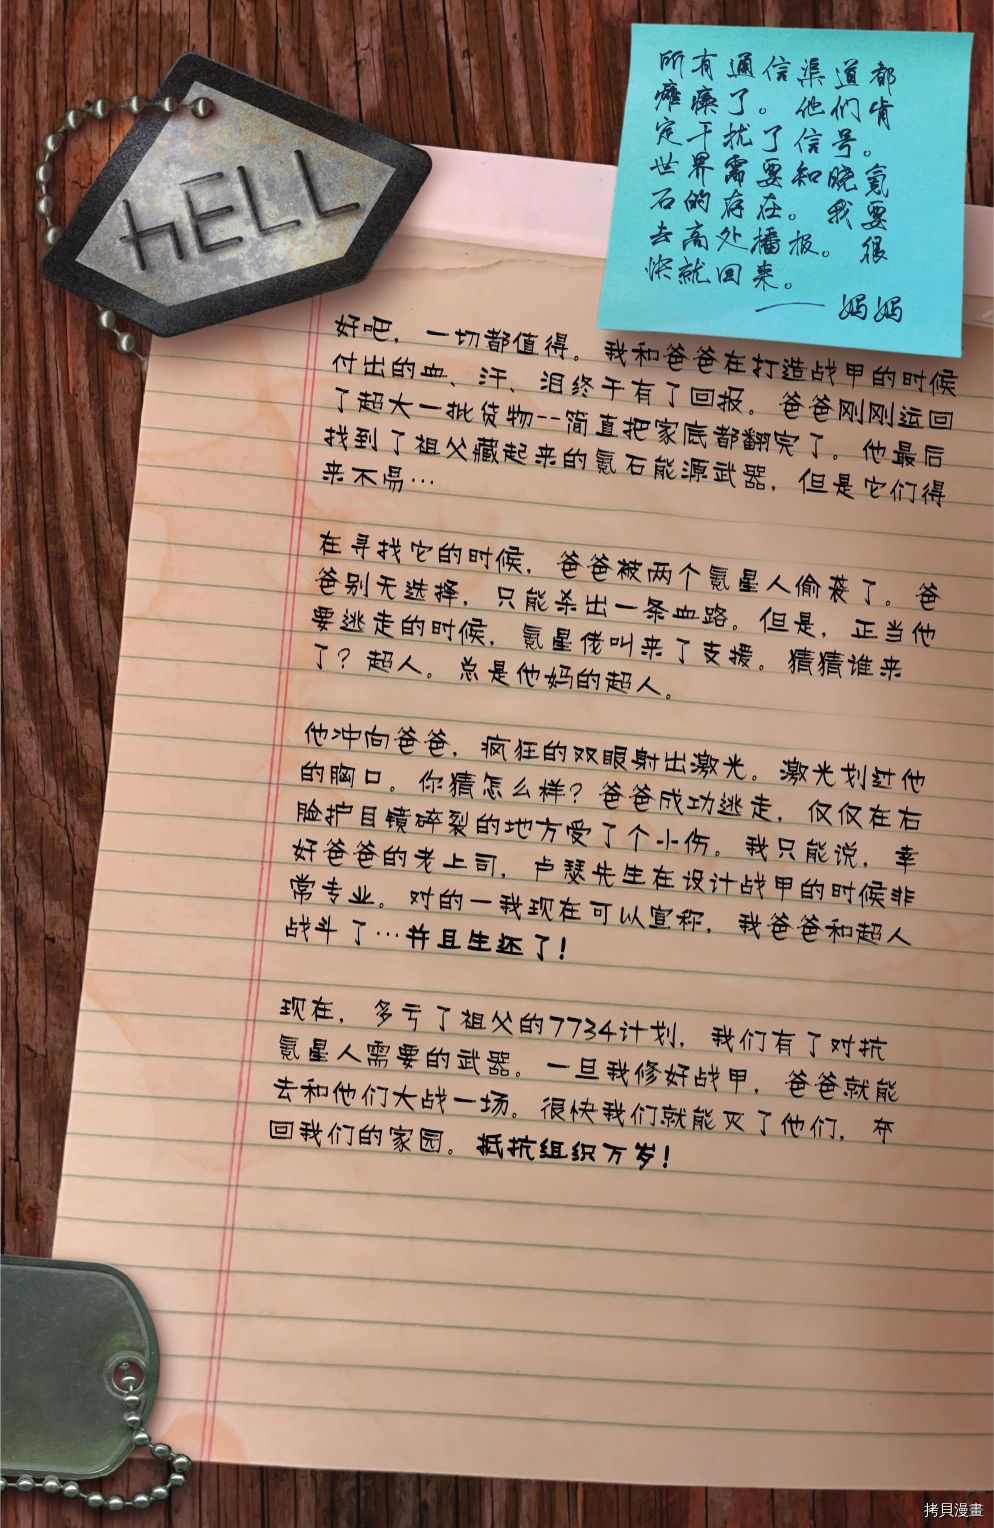 HELL
所有通信渠道都
瘫痪了。他们肯
定干扰了信号。
世界需要知晓氪
石的存在。我要
去高处播报。很
快就回来。
——妈妈
好吧，一切都值得。我和爸爸在打造战甲的时候
付出的血、汗、泪终于有了回报。爸爸刚刚运回
了超大一批货物--简直把家底都翻完了。他最后
找到了祖父藏起来的氪石能源武器，但是它们得
来不易…
在寻找它的时候，爸爸被两个氪星人偷袭了。爸
爸别无选择，只能杀出一条血路。但是，正当他
要逃走的时候，氪星佬叫来了支援。猜猜谁来
了？超人。总是他妈的超人。
他冲向爸爸，疯狂的双眼射出激光。激光划过他
的胸口。你猜怎么样？爸爸成功逃走，仅仅在右
脸护目镜碎裂的地方受了个小伤。我只能说，幸
好爸爸的老上司，卢瑟先生在设计战甲的时候非
常专业。对的一我现在可以宣称，我爸爸和超人
战斗了…并且生还了！
现在，多亏了祖父的7734计划，我们有了对抗
氪星人需要的武器。一旦我修好战甲，爸爸就能
去和他们大战一场。很快我们就能灭了他们，夺
回我们的家园。抵抗组织万岁！
拷貝漫畫